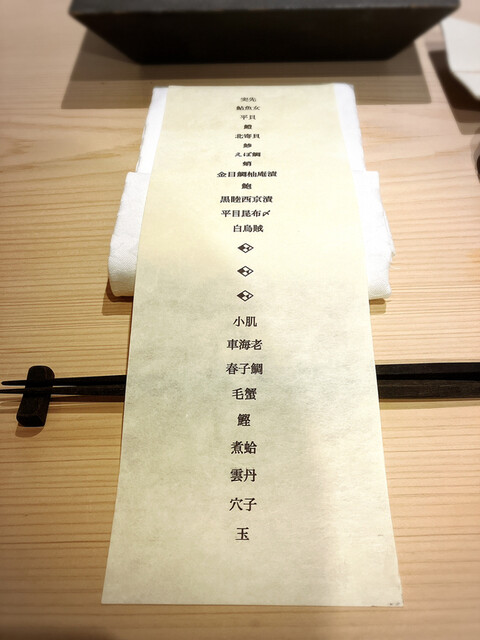 鮎魚女
平貝
北寄貝
えぼ鯛
蛸
金目鯛柚庵漬
鮑
黒睦西京漬
平目昆布〆
白烏賊
小肌
車海老
春子鯛
毛蟹
鰹
煮蛤
雲丹
穴子
玉